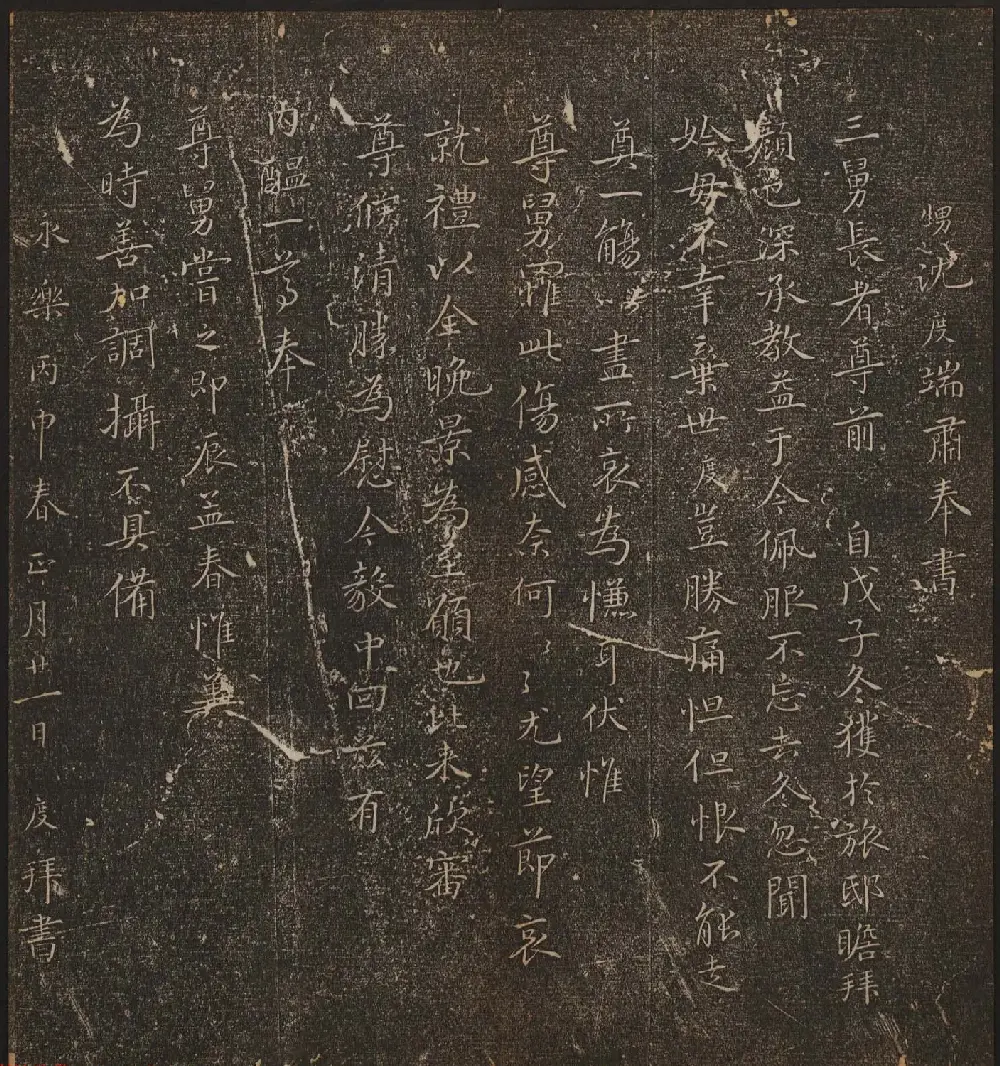 甥沈度端肅奉書
三舅長者尊前 自戊子冬獲於旅邸瞻拜
顏色深承教益于今佩服不忘去冬忽聞
妗母不幸棄世度豈勝痛怛但恨不能走
奠一觴以盡所哀為慊耳伏惟
尊舅罹此傷感奈何〻〻尤望節哀
就禮以全晚景為至願也比來欣審
尊候清勝為慰今毅中回玆有
丙醞一尊奉
尊舅嘗之即辰孟春惟兾
為時善加調攝不具備
永樂丙申春正月廿一日 度拜書